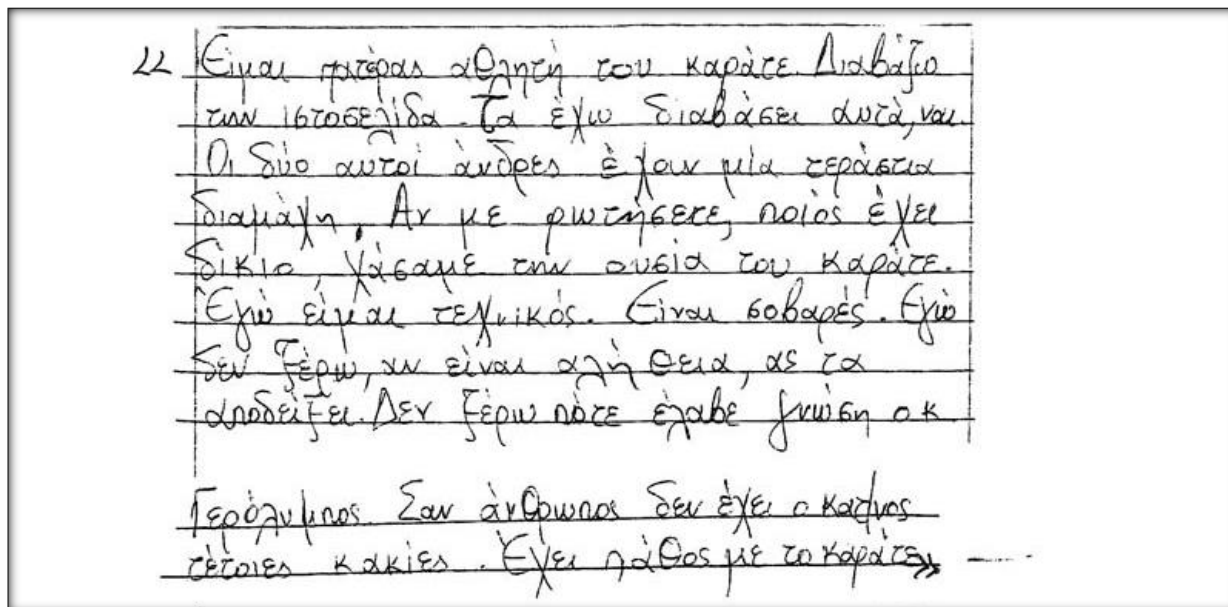 «Είμαι πατέρας αθλητή του καράτε. Διαβάζω
την ιστοσελίδα. Τα έχω διαβάσει αυτά, ναι.
Οι δύο αυτοί άνδρες έχουν μία τεράστια
διαμάχη. Αν με ρωτήσετε, ποιός έχει
δίκιο, χάσαμε την ουσία του καράτε.
Εγώ είμαι τεχνικός. Είναι σοβαρές. Εγώ
δεν ξέρω, αν είναι αλήθεια, ας τα
αποδείξει. Δεν ξέρω πότε έλαβε γνώση ο κ.
Γερόλυμπος. Σαν άνθρωπος δεν έχει ο
τέτοιες κακίες. Έχει πάθος με το καράτε»